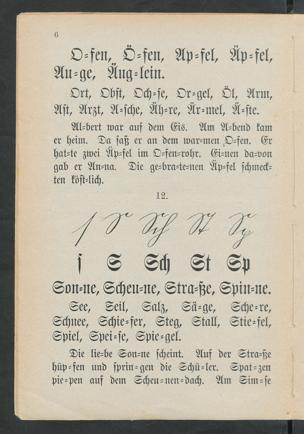 6
O=fen, Ö=fen, Ap=fel, Äp=fel,
Au=ge, Äug=lein.
Ort, Obst, Och=se, Or=gel, Öl, Arm,
Ast, Arzt, A=sche, Äh=re, Är=mel, Ä=ste.
Al=bert war auf dem Eis. Am A=bend kam
er heim. Da saß er an dem war=men O=fen. Er
hat=te zwei Äp=fel im O=fen=rohr. Ei=nen da=von
gab er An=na. Die ge=bra=te=nen Äp=fel schmeck=
ten köst=lich.
12.
s S Sch St Sp
s S Sch St Sp
Son=ne, Scheu=ne, Stra=ße, Spin=ne.
See, Seil, Salz, Sä=ge, Sche=re,
Schnee, Schie=fer, Steg, Stall, Stie=fel,
Spiel, Spei=se, Spie=gel.
Die lie=be Son=ne scheint. Auf der Stra=ße
hüp=fen und sprin=gen die Schü=ler. Spat=zen
pie=pen auf dem Scheu=nen=dach. Am Sim=se